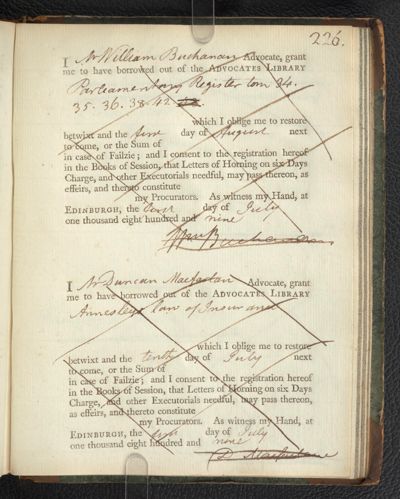 226.
I Mr William Buchanan Advocate, grant
me to have borrowed out of the ADVOCATES LIBRARY
Parliamentary Register tom 34.
35. 36. 38. 42
which I oblige me to restore
betwixt and the first day of August next
to come, or the Sum of
in case of Failzie; and I consent to the registration hereof
in the Books of Session, that Letters of Horning on six Days
Charge, and other Executorials needful, may pass thereon, as
effeirs, and thereto constitute
my Procurators. As witness my Hand, at
EDINBURGH, the first day of July
one thousand eight hundred and nine
Wm Buchanan
I Mr Duncan Macfarlan Advocate, grant
me to have borrowed out of the ADVOCATES LIBRARY
Annesley's law of Insurance
which I oblige me to restore
betwixt and the tenth day of July next
to come, or the Sum of
in case of Failzie; and I consent to the registration hereof
in the Books of Session, that Letters of Horning on six Days
Charge, and other Executorials needful, may pass thereon,
as effeirs, and thereto constitute
my Procurators. As witness my Hand, at
EDINBURGH, the first day of July
one thousand eight hundred and nine
D. Macfarlane